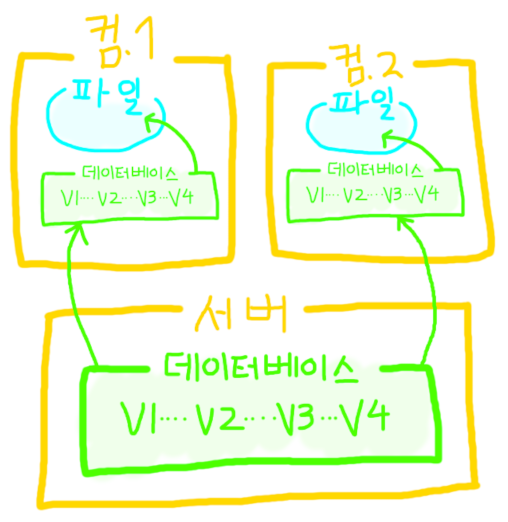 컴.1
파일
데이터베이스
V1···· V2····V3···V4
컴.2
파일
데이터베이스
V1···· V2····V3···V4
서버
데이터베이스
V1···· V2····V3···V4